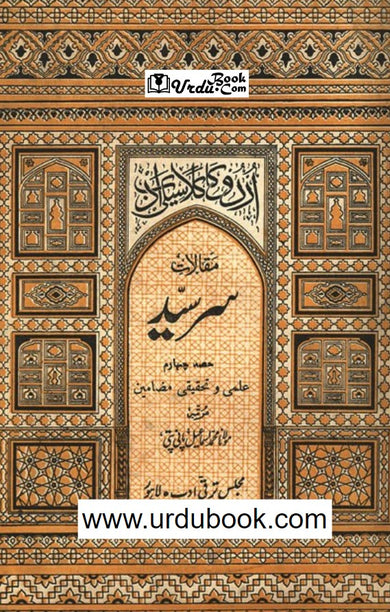 Book
Urdu.Com
اردو کا کلاسیکی ادب
مقالات
سر سید
حصہ چہارم
علمی و تحقیقی مضامین
مرتبہ
مولانا محمد اسماعیل پانی پتی
مجلس ترقی ادب ٥ لاہور
www.urdubook.com